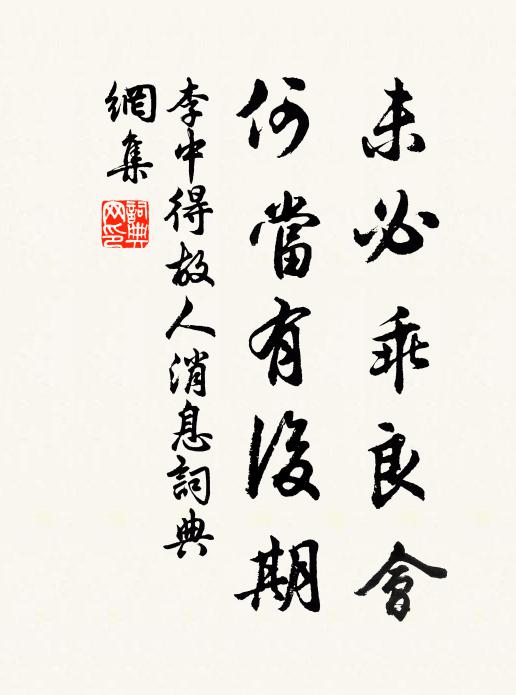 未必乖良會
何當有後期
李中得故人消息詞典
網集
詞典網印